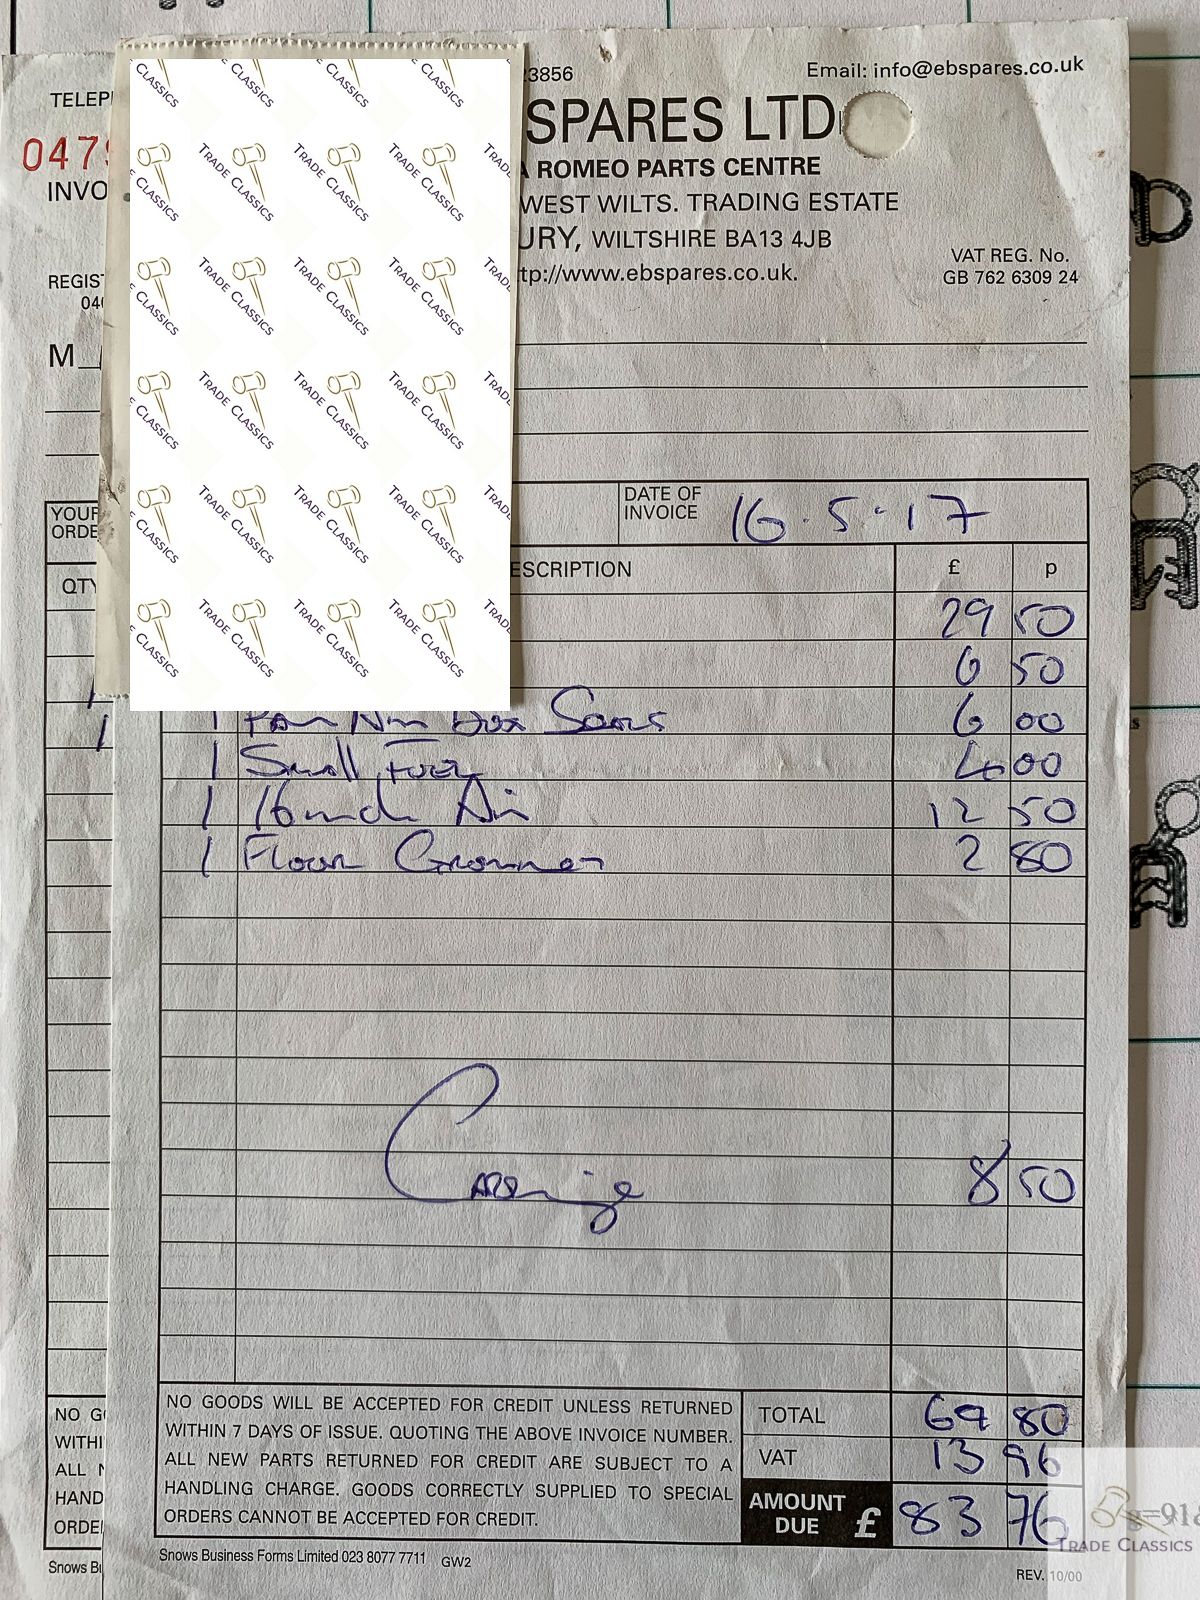 23856
Email: info@ebspares.co.uk
TELEP
SPARES LTD
047
A ROMEO PARTS CENTRE
INVO
WEST WILTS. TRADING ESTATE
URY, WILTSHIRE BA13 4JB
VAT REG. No.
REGIS
tp://www.ebspares.co.uk.
GB 762 6309 24
04
M
YOUR
ORDE
DATE OF
INVOICE
16.5.17
QTY
ESCRIPTION £ p
29 50
6 50
1 Box 6 00
1 Small 4 00
1 Air 12 50
1 Floor Grommet 2 80
Carriage 8 50
NO GOODS WILL BE ACCEPTED FOR CREDIT UNLESS RETURNED
WITHIN 7 DAYS OF ISSUE. QUOTING THE ABOVE INVOICE NUMBER.
ALL NEW PARTS RETURNED FOR CREDIT ARE SUBJECT TO A
HANDLING CHARGE. GOODS CORRECTLY SUPPLIED TO SPECIAL
ORDERS CANNOT BE ACCEPTED FOR CREDIT.
TOTAL 69 80
VAT 13 96
AMOUNT
DUE £ 83 76
NO G
WITHI
ALL N
HAND
ORDE
Snows Business Forms Limited 023 8077 7711 GW2
Snows Bu
REV. 10/00
=918
TRADE CLASSICS